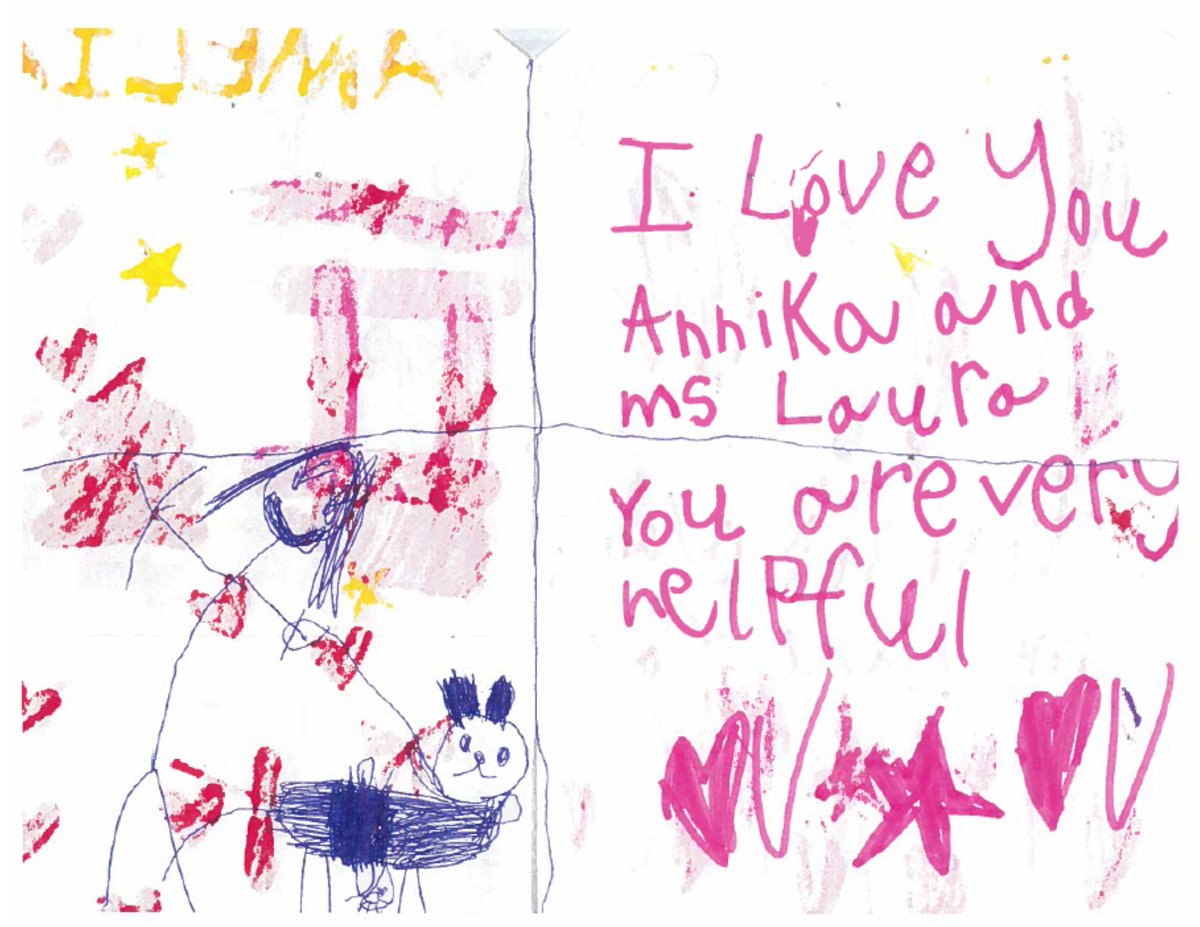 AMELIA
I Love You
Annika and
ms Laura
You are very
helPful